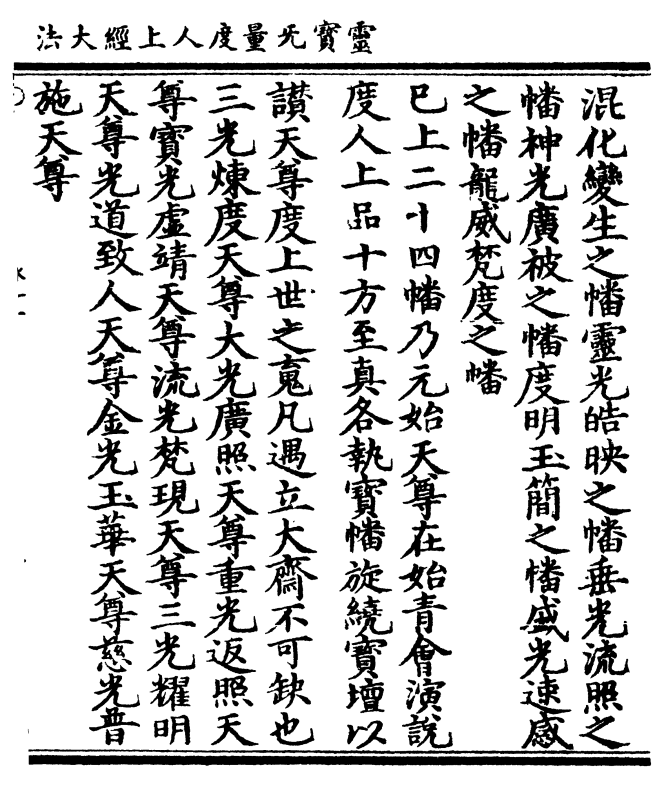 靈寶旡量度人上經大法
混化變生之幡靈光皓映之幡垂光流照之
幡神光廣被之幡度明玉簡之幡盛光速感
之幡龍威梵度之幡
已上二十四幡乃元始天尊在始青會演說
度人上品十方至真各執寶幡旋繞寶壇以
讃天尊度上世之䰟凡遇立大齋不可缺也
三光煉度天尊大光廣照天尊重光返照天
尊寶光虛靖天尊流光梵現天尊三光耀明
天尊光道致人天尊金光玉華天尊慈光普
施天尊